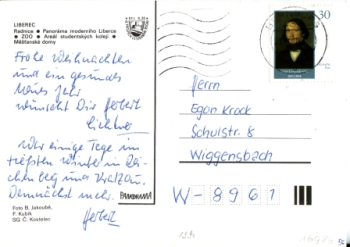 LIBEREC
Radnice • Panoráma moderního Liberce
• ZOO • Areál studentských kolejí •
Měšťanské domy
Frohe Weihnachten
und ein gesundes
Neues Jahr
wünscht Dir Herbert
Wir einige Tage im
tiefsten Winter in Rei-
chenberg und Kratzau.
Demnächst mehr.
Herbert
Foto B. Jakoubě,
F. Kubík
SG. Č. Kostelec
PANORAMA
30
Herrn
Egon Krock
Schulstr. 8
Wiggensbach
W-8961